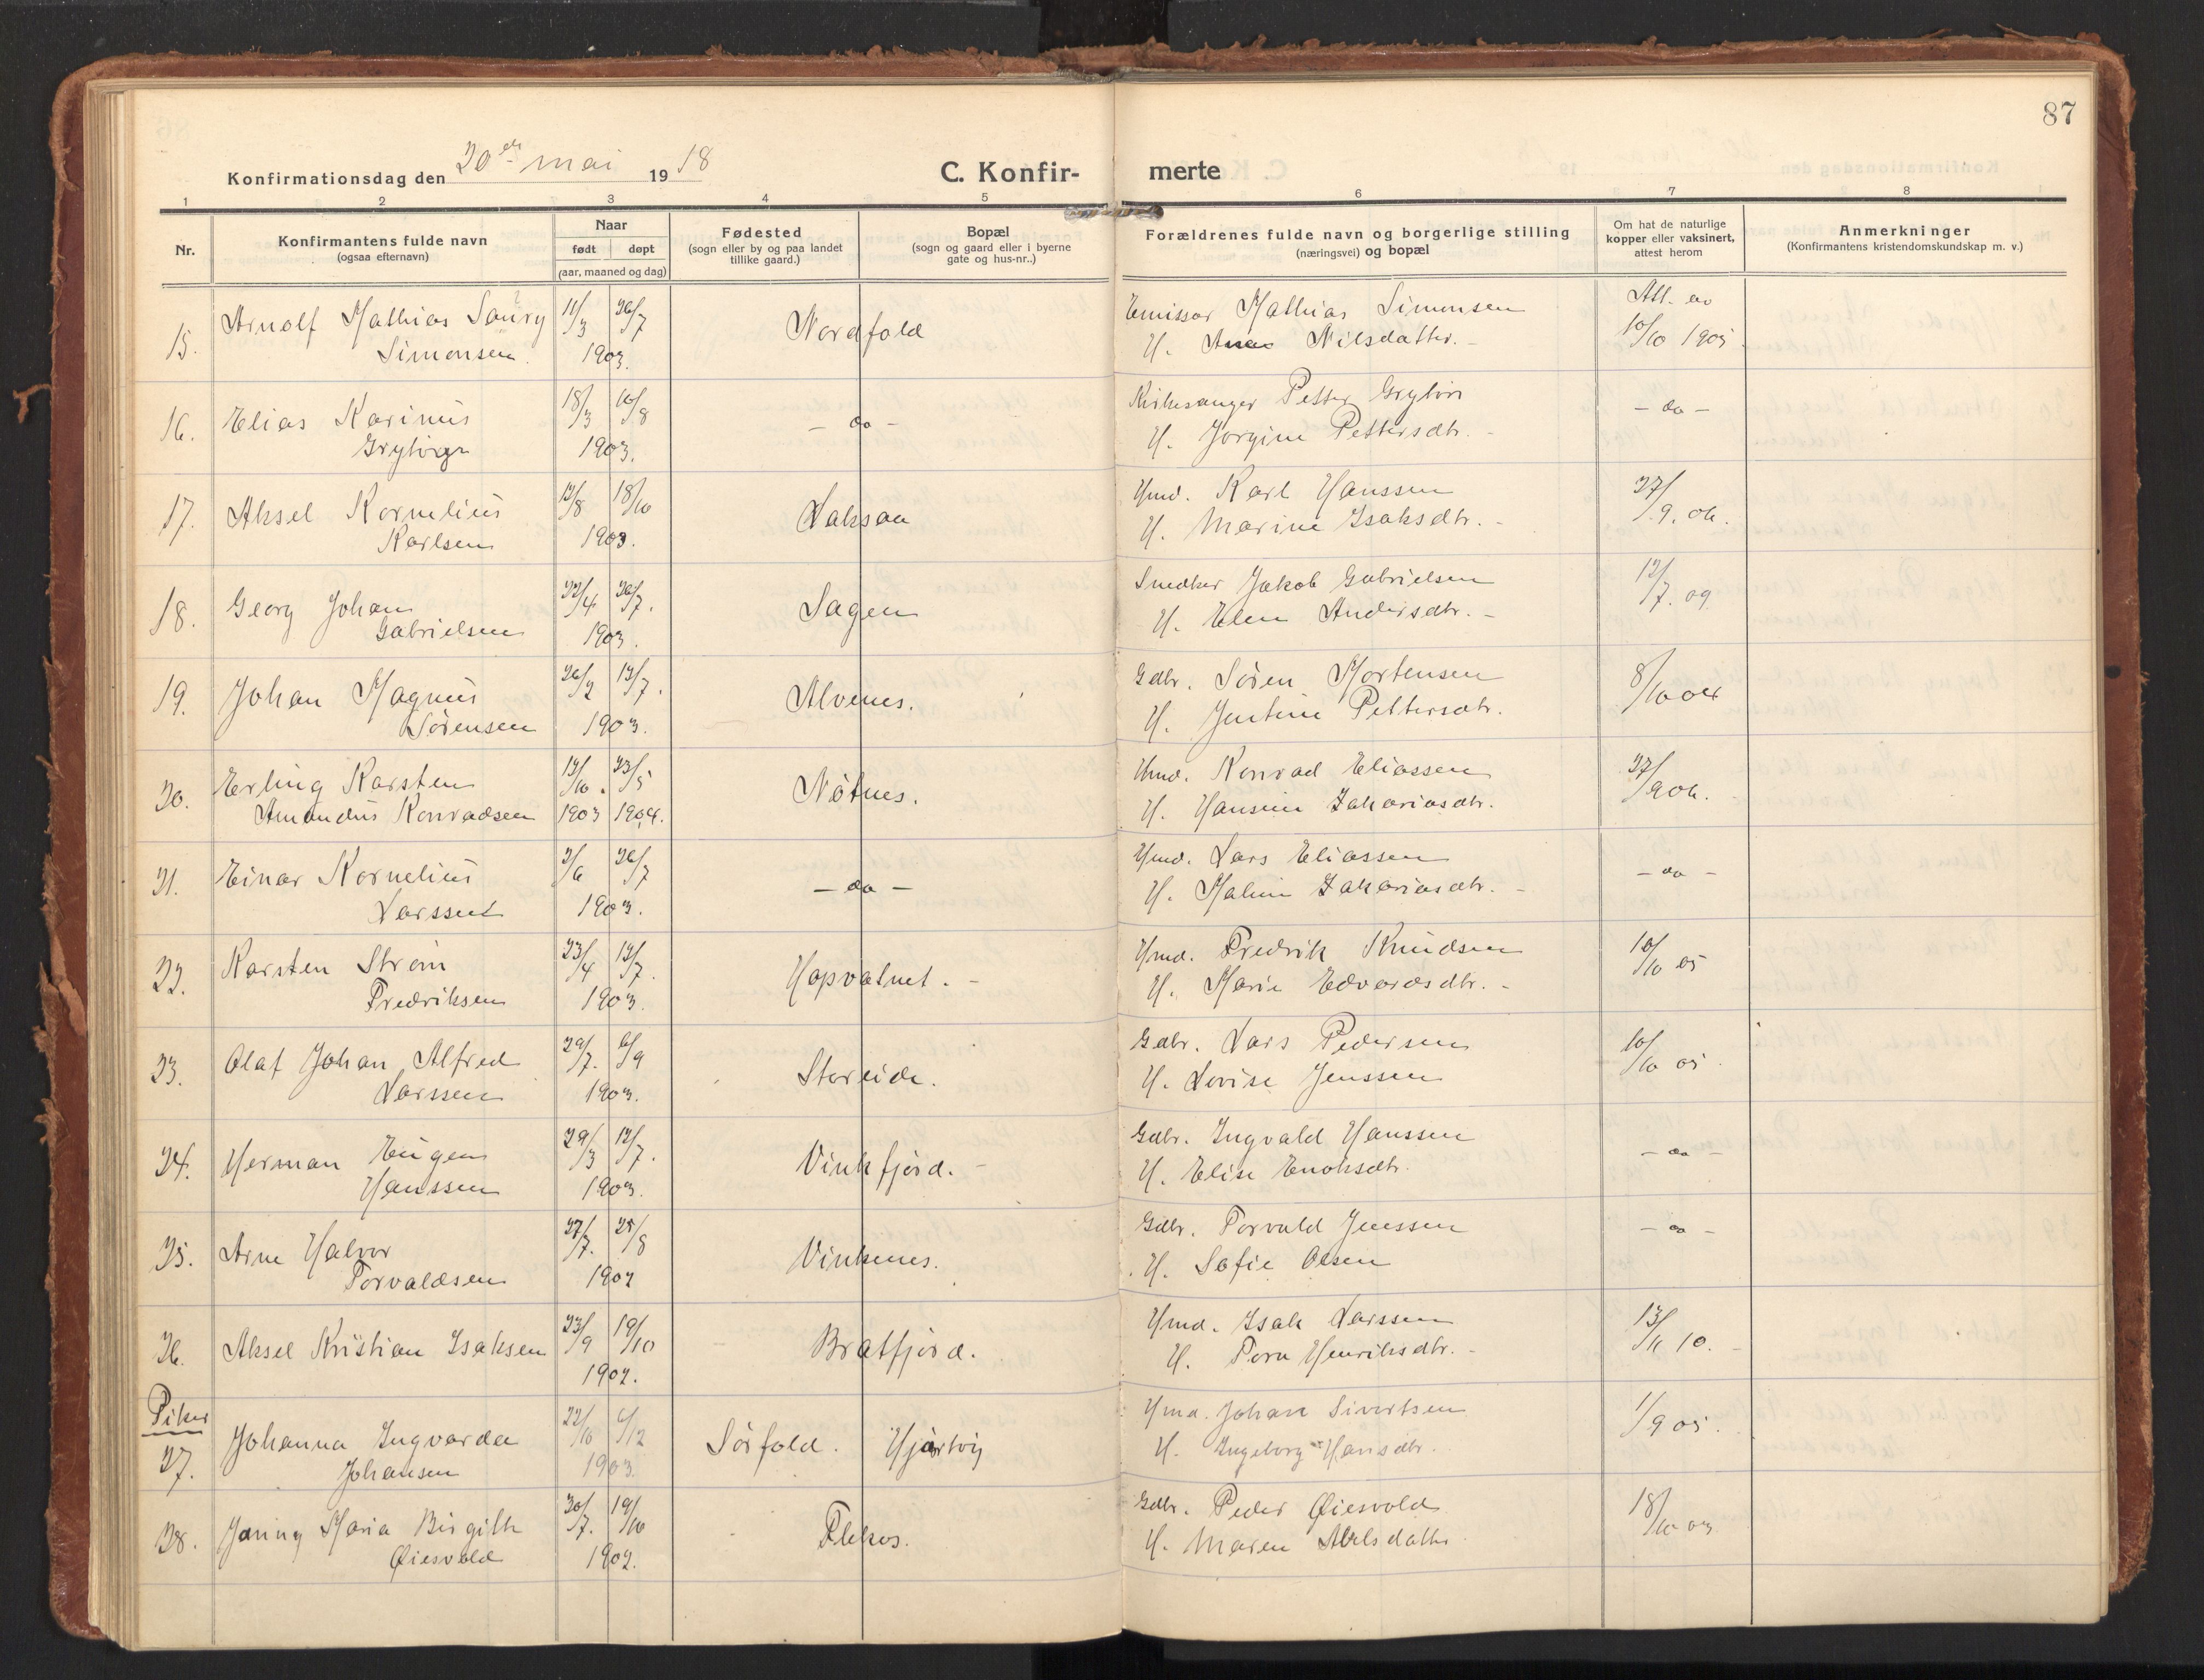 87
Konfirmationsdag den 20de mai 1918
C. Konfir-
merte
1 2 3 4 5 6 7 8
Nr.
Konfirmantens fulde navn
(ogsaa efternavn)
Naar
født døpt
(aar, maaned og dag)
Fødested
(sogn eller by og paa landet
tillike gaard.)
Bopæl
(sogn og gaard eller i byerne
gate og hus-nr..)
Forældrenes fulde navn og borgerlige stilling
(næringsvei) og bopæl
Om hat de naturlige
kopper eller vaksinert,
attest herom
Anmerkninger
(Konfirmantens kristendomskundskap m. v.)
15. Arnolf Mathias 11/3 26/7 Nordfold Emissær Mathias Simonsen Att. av
Simonsen 1903. H. Nilsdatter. 10/10 1905
16. Elias Karinus 18/3 16/8 - do - Kirkesanger Petter
1903. H. Jorgine Pettersdtr. - do -
17. Aksel Kornelius 12/8 18/10 Laksaa Hmd. Karl Hanssen 27/9. 06.
Karlsen 1903. H. Marine Isaksdtr.
18. Georg Johan 22/4 26/7. Sagen Snedker Jakob Gabrielsen 12/7. 09
Gabrielsen 1903. H. Elen Andersdtr.
19. Johan Magnus 26/2 12/7. Alvenes. Gdbr. Sören Mortensen 8/10 04
Sörensen 1903. H. Jentine Pettersdtr.
20. Erling Karsten 12/10. 23/5 Nötnes. Hmd. Konrad Eliassen 27/9 06.
Amandus Konradsen 1903 1904. H. Hansine Zakariasdtr.
21. Einar Kornelius 2/6 26/7 - do - Hmd. Lars Eliassen - do -
Larssen 1903. H. Malin Zakariasdtr.
22. Karsten Strøm 23/4 12/7. Hopvatnet. Hmd. Fredrik Knudsen 10/10 05
Fredriksen 1903. H. Marie Edvardsdtr.
23. Olaf Johan Alfred 29/7. 6/9 Storeide. Gdbr. Lars Pedersen 10/10 05.
Larssen 1903. H. Lovise Jenssen
24. Herman Eugen 29/3 12/7. Vinkfjord. Gdbr. Ingvald Hanssen - do -
Hanssen 1903. H. Elise Enoksdtr.
25. Arne Halvor 27/7. 25/8 Vinkenes. Gdbr. Torvald Jenssen - do -
Torvaldsen 1902 H. Sofie Olsen
26. Aksel Kristian Isaksen 23/9 19/10 Bratfjord. Hmd. Isak Larssen 13/11 10.
1902. H. Tora Henriksdtr.
Piker
27. Johanna Ingvarda 22/10 6/12 Sörfold. Hjortvig Hmd. Johan Sivertsen 1/9 05.
Johansen 1903 H. Ingeborg Hansdtr.
28. Jenny Maria Birgitte 30/7. 19/10 Flekos. Gdbr. Peder Øiesvold 18/10 03
Øiesvold 1902. H. Maren Abelsdatter